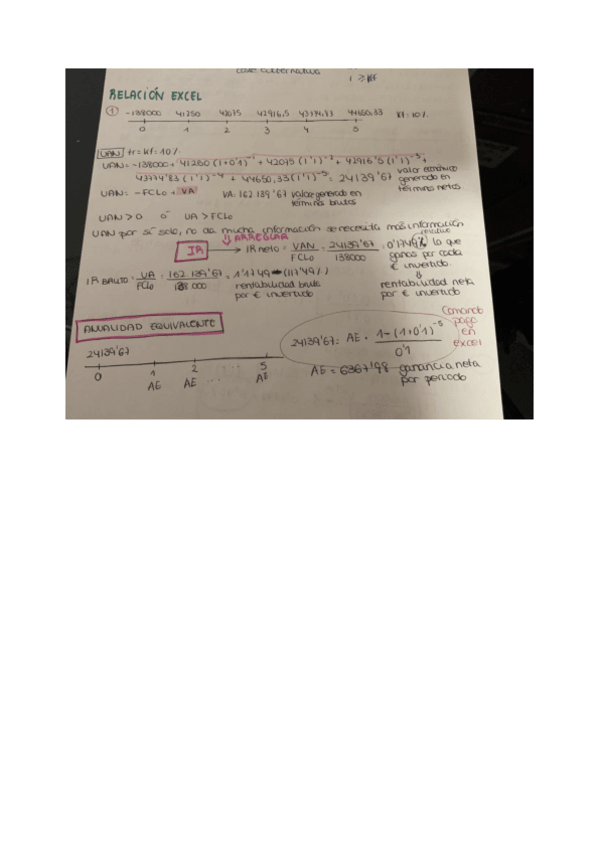 i ≥ kf
RELACIÓN EXCEL
① -138000 41250 42075 42916,5 43774,83 44650,33 kf: 10%
0 1 2 3 4 5
VAN tr = kf = 10%
VAN = -138000 + 41250 (1+0'1)⁻¹ + 42075 (1'1)⁻² + 42916'5 (1'1)⁻³ +
43774'83 (1'1)⁻⁴ + 44650,33 (1'1)⁻⁵ = 24139'67
valor económico
generado en
términos netos.
VAN = -FCL0 + VA VA: 162 139'67 valor generado en
términos brutos
VAN > 0 ó VA > FCL0
VAN por sí solo, no da mucha información se necesita más información
relative
⇓ ARREGLAR
IR → IR neto = VAN/FCL0 = 24139'67/138000 = 0'1749% lo que
ganas por cada
€ invertido.
⇓
rentabilidad neta
por € invertido
IR BRUTO = VA/FCL0 = 162 139'67/138 000 = 1'1749 → (117'49%)
rentabilidad bruta
por € invertido
ANUALIDAD EQUIVALENTE
24139'67
0 1 2 ... 5
AE AE ... AE
24139'67 = AE · 1-(1+0'1)⁻⁵/0'1
Comando
pago
en
excel
AE = 6367'98 ganancia neta
por periodo